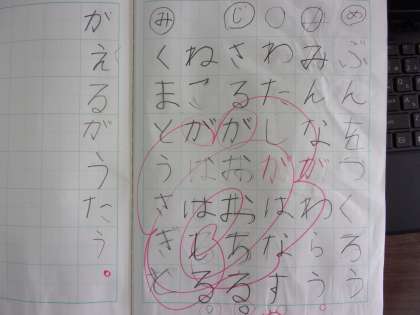 めぶんをつくろう
みんながわらう
わたしがはなす
じさるがおおちる
ねごがははしる
みくまとうさぎと
がえるがうたう。